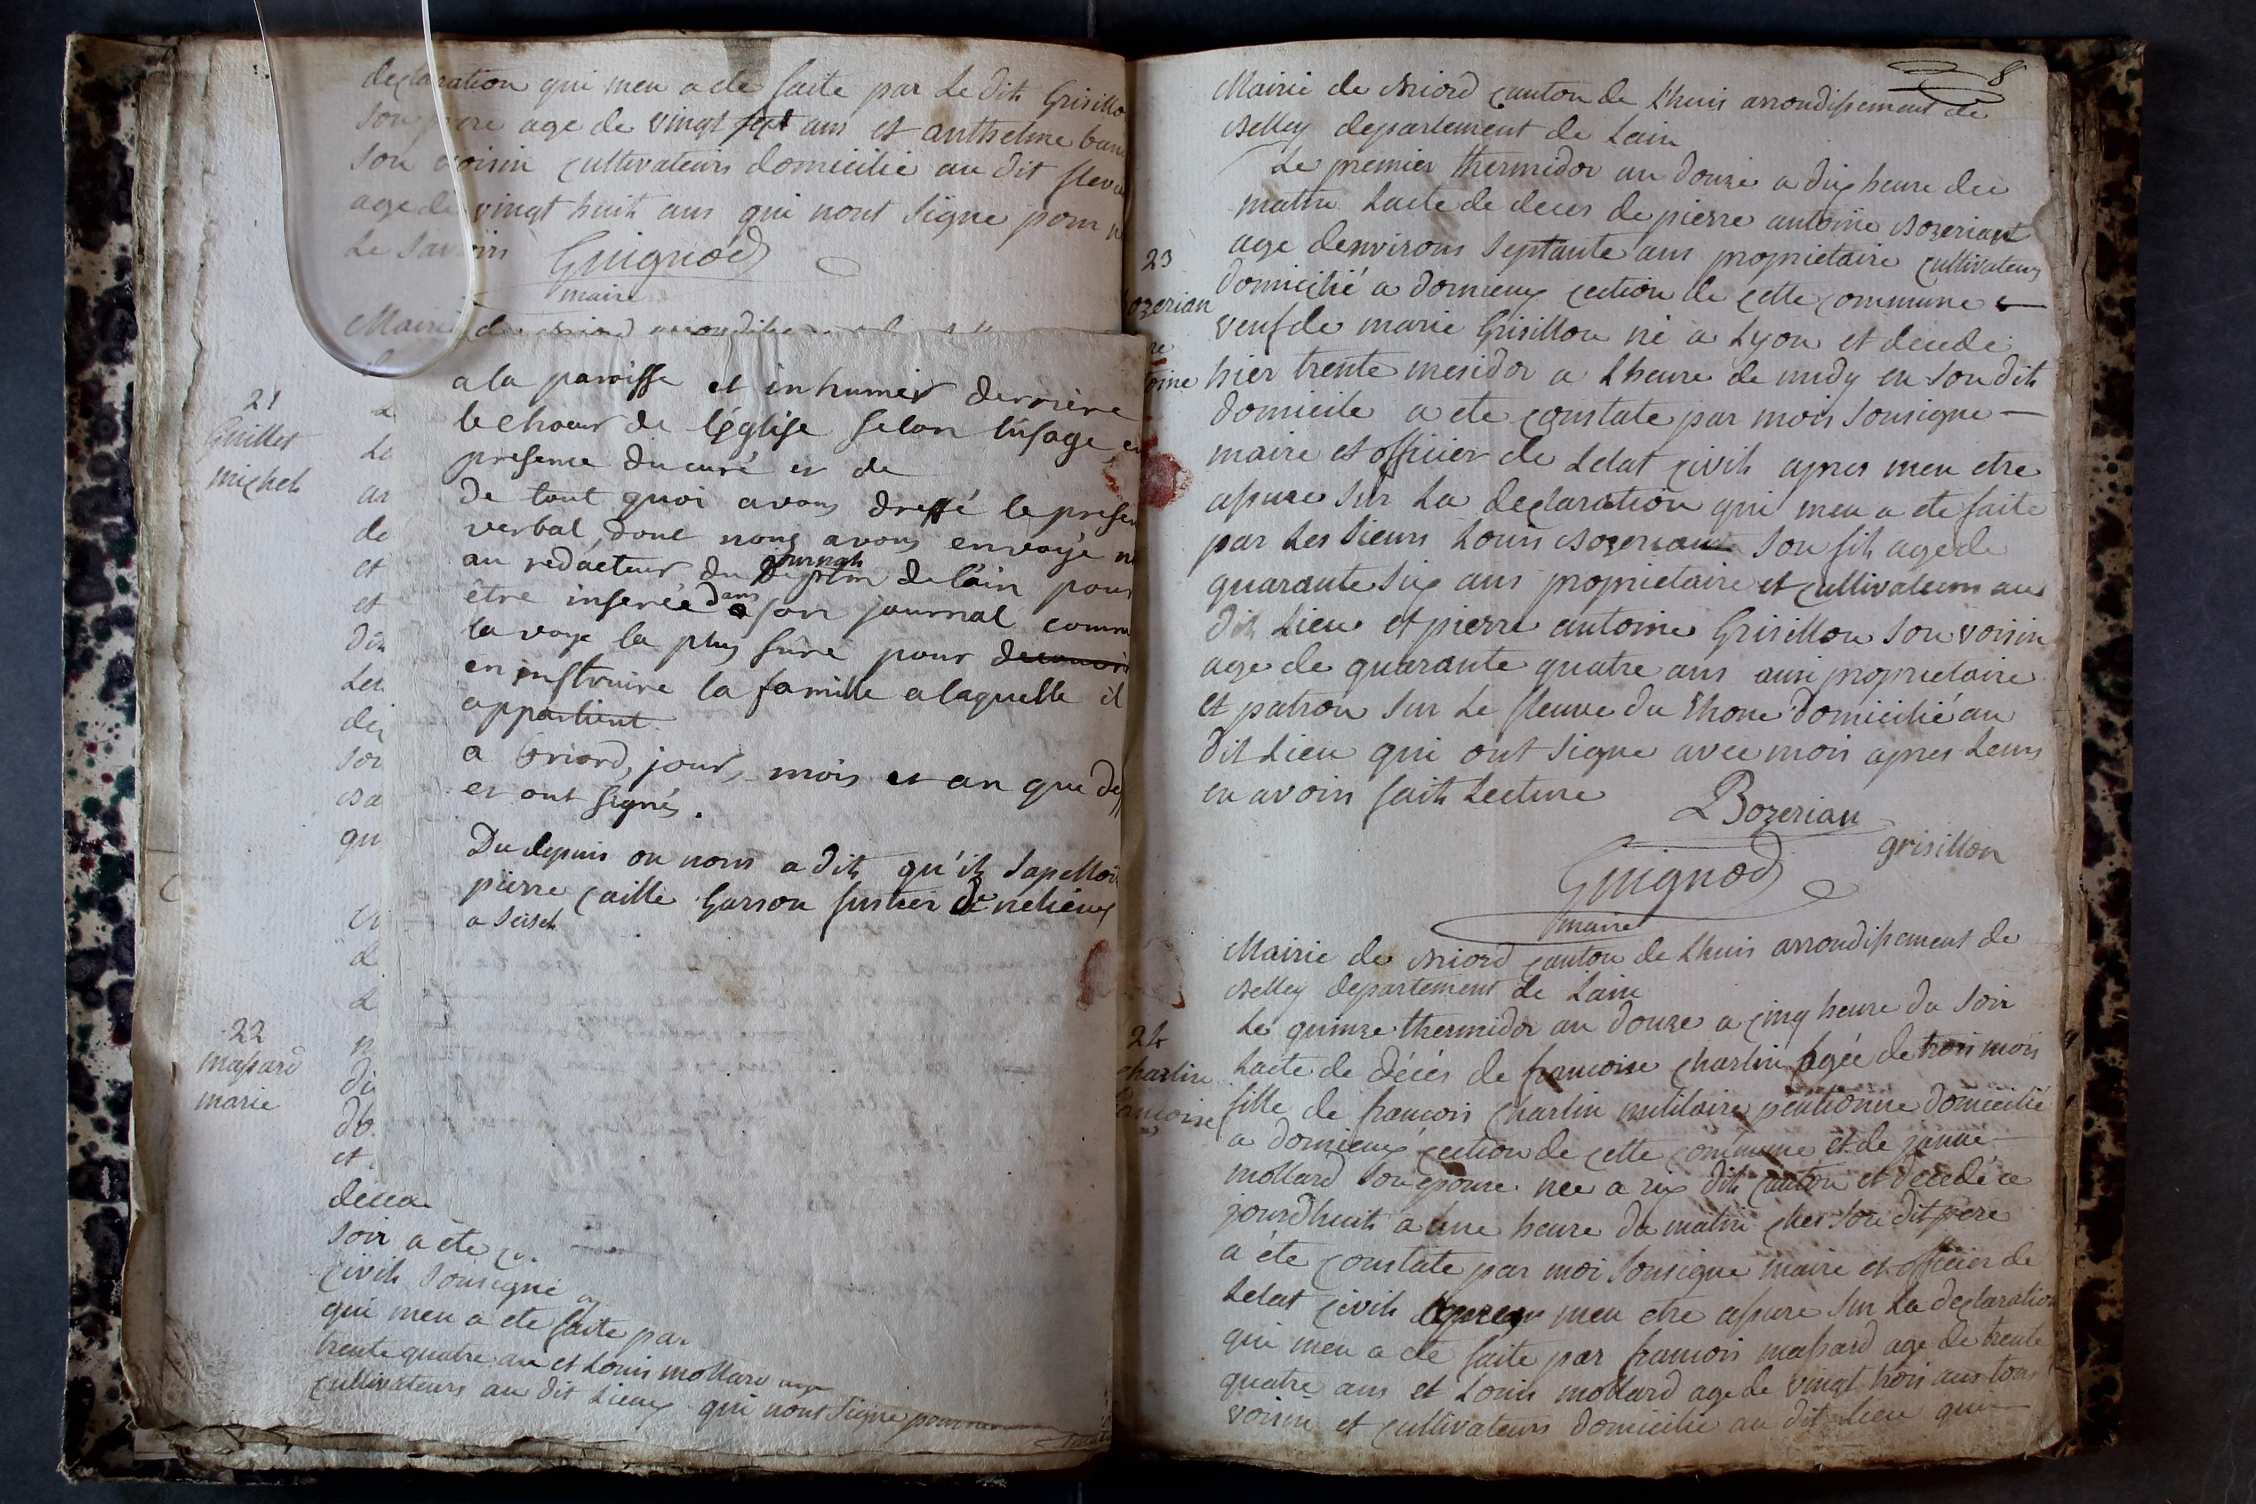 declaration qui men a ete faite par Le dit Grisillo
son pere age de vingt sept ans et anthelme
son voisin cultivateurs domicilie au dit
age de vingt huit ans qui nont signe pour
Le savoirs Guignod
maire
Mairie de Briord
21
Guillet
michel
22
massard
marie
a la paroisse et inhumer derriere
le choeur de l'église selon l'usage, en
presence du curé et de
de tout quoi avons dressé le presen
verbal, dont nous avons envoyé
au redacteur du journal de l'ain pour
être inserée dans son journal comme
la voye la plus sûre pour
en instruire la famille a laquelle il
appartient.
a briord, jour, mois et an que
et ont signés.
Du depuis on nous a dit qu'il sapelloi
pierre caille Garson
a seisel
La
ar
de
et
et
Lu
qu
di
et
decea
soir a ete
civil sousigne
qui men a ete faite par
trente quatre an et Louis mollard age
cultivateurs au dit Lieux qui nont signe pour
8
Mairie de Briord canton de Lhuis arrondissement de
Belley departement de Lain
Le premier thermidor an douze a dix heure du
matin Lacte de deces de pierre antoine Bozeriant
age denvirons septante ans proprietaire cultivateurs
domicilié a dornieux cection de cette commune
veuf de marie Grisillon né a Lyon et decede
hier trente mesidor a Lheure de midy en son dit
domicile a ete constate par mois sousigne
maire et officier de Letat civil apres men etre
assure sur La declaration qui men a ete faite
par Les sieurs Louis Bozerian son fils age de
quarante six ans proprietaire et cultivateurs au
dit Lieu et pierre antoine Grisillon son voisin
age de quarante quatre ans ausi proprietaire
et patron sur Le fleuve du Rhone domicilié au
dit Lieu qui ont signe avec mois apres Leurs
en avoir fait Lecture
23
ozerian
re
oine
LBozerian
grisillon
Guignod
maire
Mairie de Briord canton de Lhuis arrondissement de
Belley departement de Lain
Le quinze thermidor an douze a cinq heure du soir
Lacte de décés de francoise charlin agée de trois mois
fille de francois charlin militaire pentionne domicilié
a dornieux cection de cette commune et de janne
mollard son epouse nee a rix dit canton et decede ce
jourdhuit a une heure du matin ches son dit pere
a ete constate par moi sousigne maire et officier de
Letat civil apres men etre assure sur La declaration
qui men a ete faite par francois massard age de trente
quatre ans et Louis mollard age de vingt trois ans tous
voisin et cultivateurs domicilie au dit Lieu qui
24
charlin
francoise